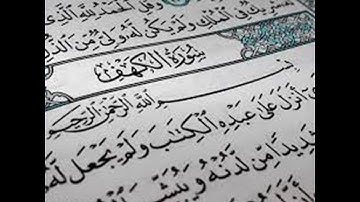 وَقُلِ ٱلْحَمْدُ لِلَّهِ ٱلَّذِى
شَرِيكٌ فِى ٱلْمُلْكِ وَلَمْ يَكُن لَّهُۥ وَلِىٌّ مِّنَ ٱلذُّلِّ
سُورَةُ الكَهْفِ
بِسْمِ ٱللَّهِ ٱلرَّحْمَٰنِ ٱلرَّحِيمِ
أَنزَلَ عَلَىٰ عَبْدِهِ ٱلْكِتَٰبَ وَلَمْ يَجْعَل لَّهُۥ
شَدِيدًا مِّن لَّدُنْهُ وَيُبَشِّرَ